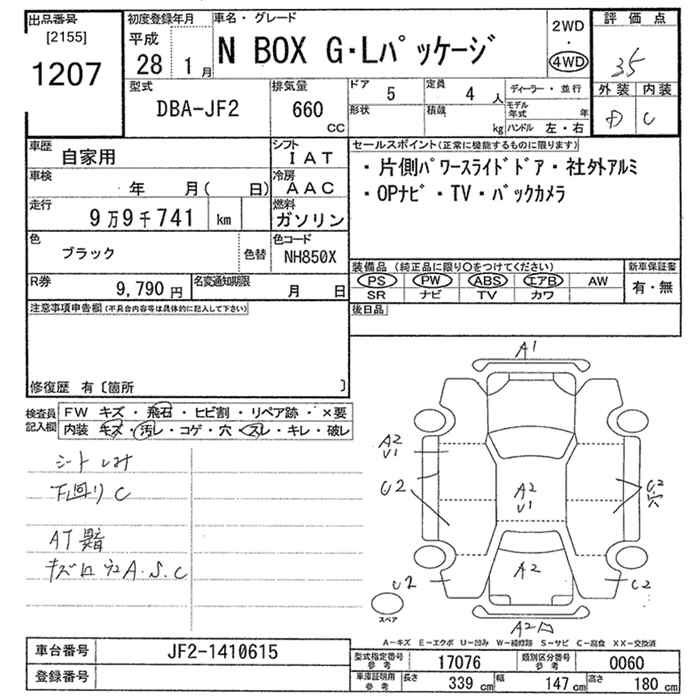 出品番号
[2155]
1207
初度登録年月
平成
28 1月
車名・グレード
N BOX G・Lパッケージ
2WD
・
4WD
評価点
3.5
外装 内装
D C
型式
DBA-JF2
排気量
660
CC
ドア 5
定員 4 人
形状
積載 kg
ディーラー・並行
モデル年式 年
ハンドル 左・右
車歴 自家用
シフト IAT
車検 年 月( 日)
冷房 AAC
走行 9万9千741 km
燃料 ガソリン
色 ブラック 色替
色コード NH850X
R券 9,790円
名変通知期限 月 日
セールスポイント(正常に機能するものに限ります)
・片側パワースライドドア・社外アルミ
・OPナビ・TV・バックカメラ
装備品(純正品に限り○をつけてください)
PS PW ABS エアB AW
SR ナビ TV カワ
新車保証書
有・無
後日品
注意事項申告欄(不具合内容等は具体的に記入して下さい)
修復歴 有〔箇所 〕
検査員記入欄
FW キズ・飛石・ヒビ割・リペア跡・×要
内装 キズ・汚レ・コゲ・穴・スレ・キレ・破レ
シートしみ
下回りC
AT異音
キズロ
A.S.C
A1
A2
U1
U2
A2
U1
U2
穴
A2
U2
U2
A2
スペア
A-キズ E-エクボ U-凹み W-補修跡 S-サビ C-腐食 XX-交換済
車台番号 JF2-1410615
登録番号
型式指定番号 参考 17076
類別区分番号 参考 0060
車庫証明用 参考 長さ 339 cm 幅 147 cm 高さ 180 cm